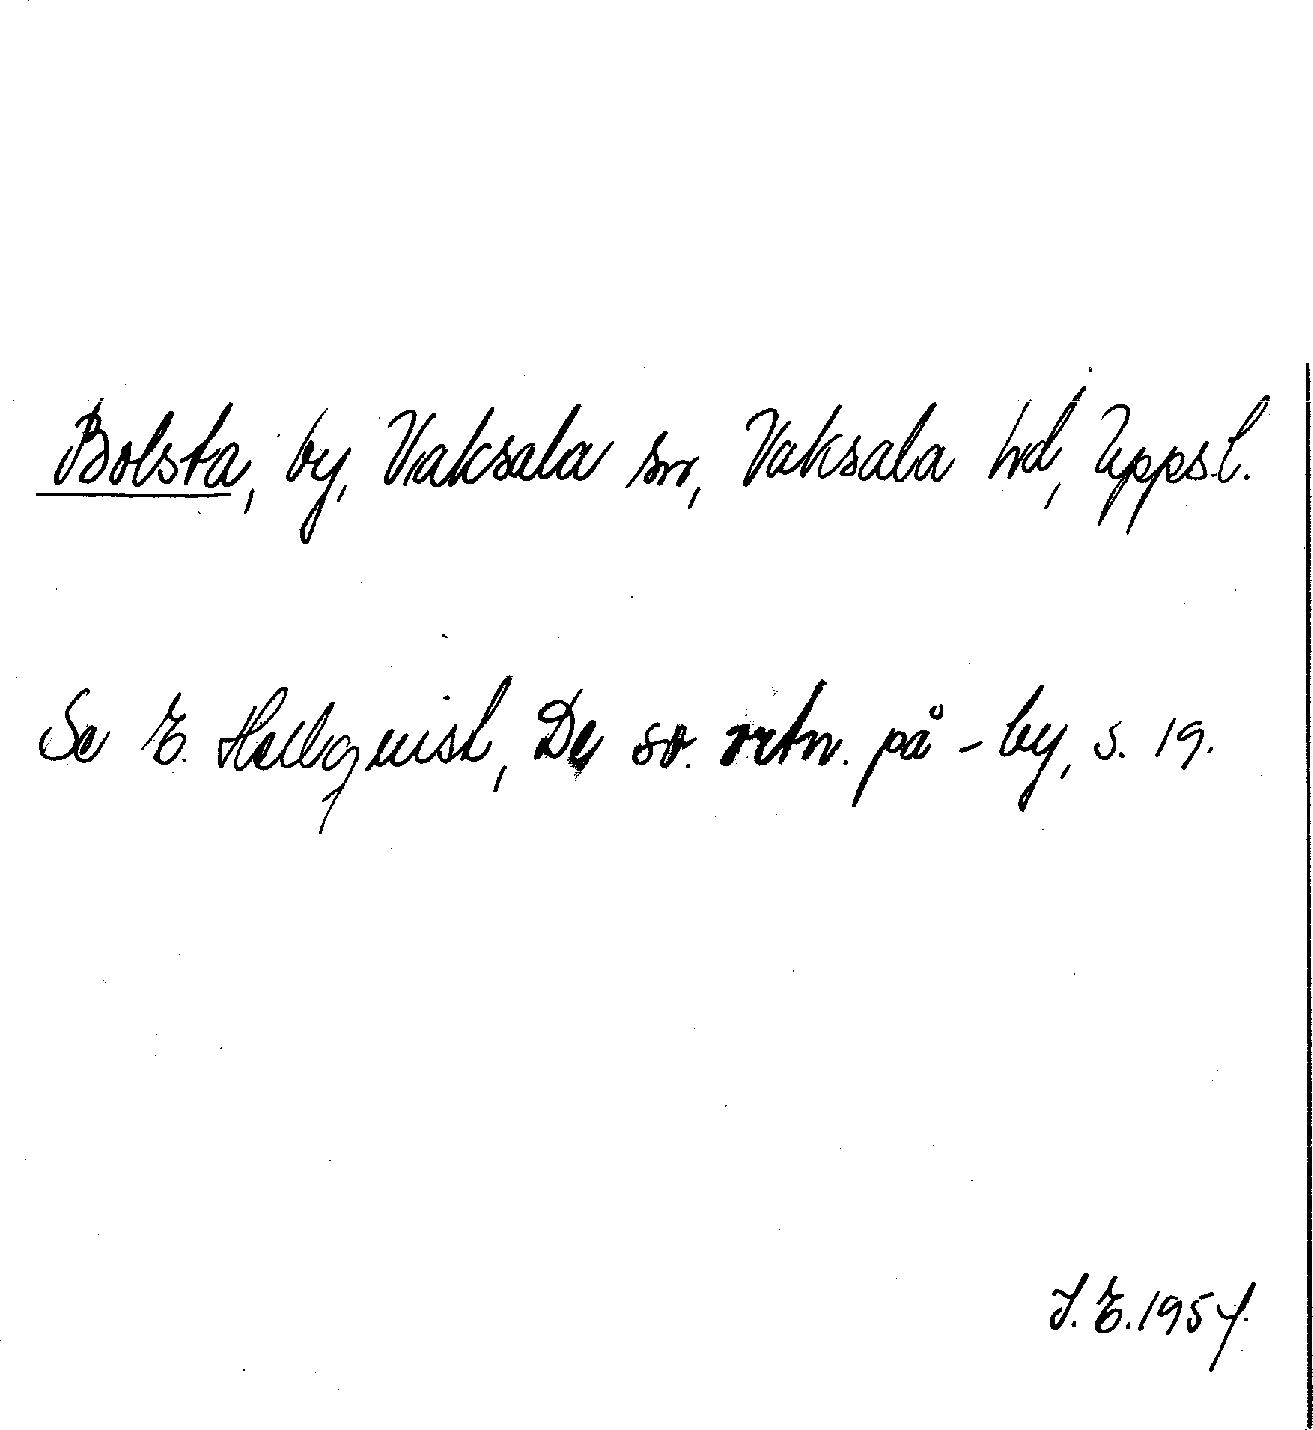 Bolsta, by, Vaksala sn, Vaksala hd, Uppsl.
Se E. Hellquist, De sv. ortn. på -by, s. 19.
I. E. 1954.